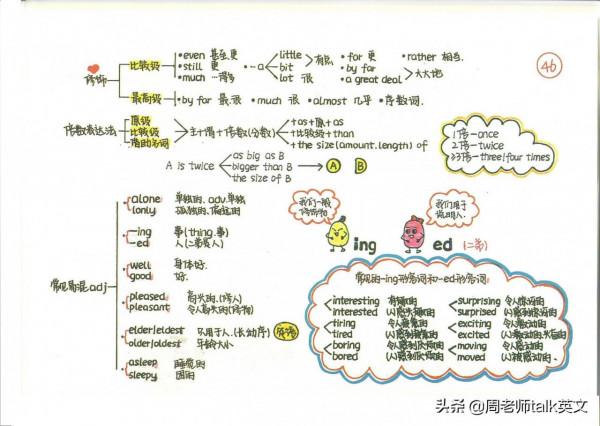 46
修饰
比较级
•even 甚至,更
•still 更
•much …得多
•a
little
bit
lot 很
有点
•far 更
•by far
•a great deal
大大地
•rather 相当.
最高级
•by far 最,很 •much 很 •almost 几乎 •序数词.
倍数表达法
原级
比较级
借助名词
主+谓+倍数(分数)
+as+原+as
+比较级+than
+the size(amount.length) of
1倍-once
2倍-twice
3倍-three|four times
A is twice
as big as B
bigger than B
the size of B
A B
常见易混adj
alone 单独的, adv.单独
lonly 孤独的,偏远的
-ing 事(thing.事)
-ed 人(二蒂养人)
well 身体好.
good 好.
pleased 高兴的.(修人)
pleasant 令人高兴的(修物)
elder|eldest 只用于人.(长幼序)
older|oldest 年龄大小
asleep 睡觉的
sleepy 困的
我们一般修饰物
ing
我们用于说明人.
ed (二蒂)
常见的-ing形容词和-ed形容词:
interesting 有趣的
interested (人)感兴趣的
tiring 令人疲惫的
tired (人)感到疲惫的
boring 令人感到厌烦的
bored (人)感到厌烦的
surprising 令人惊讶的
surprised (人)感到惊讶的
exciting 令人激动的
excited (人)激动的,兴奋的
moving 令人感动的
moved (人)被感动的.
头条 @周老师talk英文